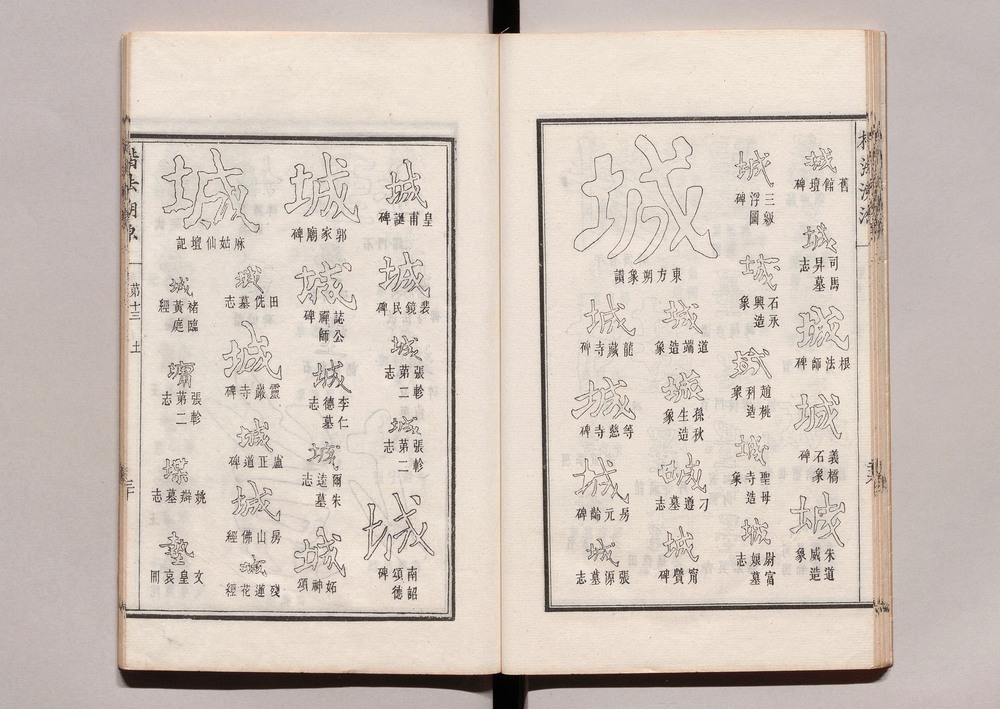 城
舊館壇碑
城
司馬昇墓志
城
根法師碑
城
義橋石象碑
城
朱道威造象
城
三級浮圖碑
城
石永興造象
城
趙桃科造象
城
聖母寺造象
城
尉富娘墓志
城
東方朔象讚
城
道端造象
城
孫秋生造象
城
刁遵墓志
城
甯贙碑
城
龍藏寺碑
城
等慈寺碑
城
房元齡碑
城
張源墓志
城
皇甫誕碑
城
裴鏡民碑
城
張軫第二志
城
張軫第二志
城
南詔德頌碑
城
郭家廟碑
城
誌公禪師碑
城
李仁德墓志
城
爾朱逵墓志
城
姤神頌
城
麻姑仙壇記
城
田侁墓志
城
靈巖寺碑
城
盧正道碑
城
房山佛經
城
殘蓮花經
城
褚臨黃庭經
墉
張軫第二志
堞
姚辯墓志
墊
文皇哀冊
楷法溯源
第十三 土